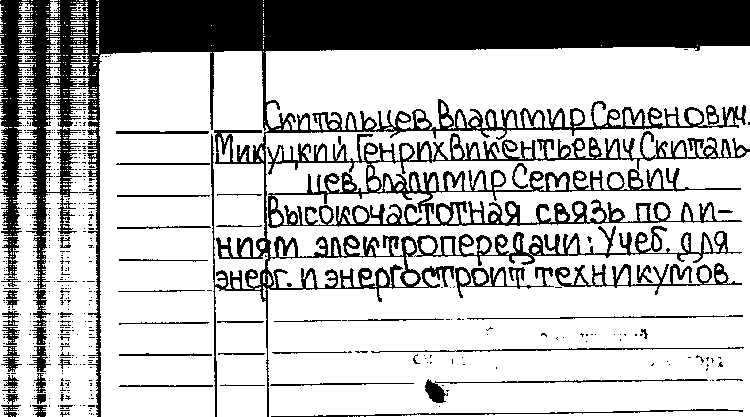 Скитальцев, Владимир Семенович.
Микуцкий, Генрих Викентьевич, Скиталь-
цев, Владимир Семенович.
Высокочастотная связь по ли-
ниям электропередачи: Учеб. для
энерг. и энергостроит. техникумов.